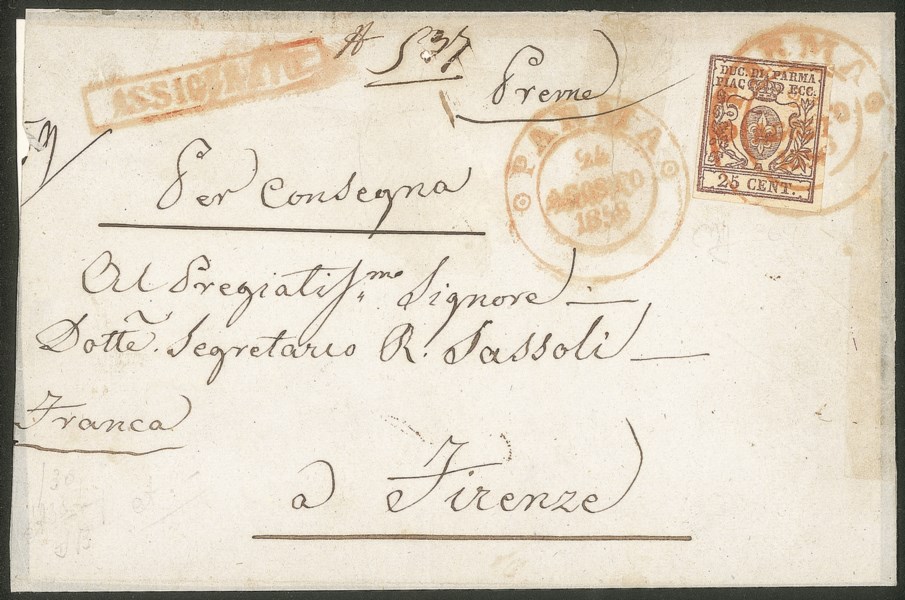 ASSICURATO
537
Preme
DUC. DI PARMA
PIAC. ECC.
25 CENT.
PARMA
24
AGOSTO
1858
Per Consegna
Al Pregiatissmo Signore
Dotte. Segretario R. Sassoli
Franca
a Firenze